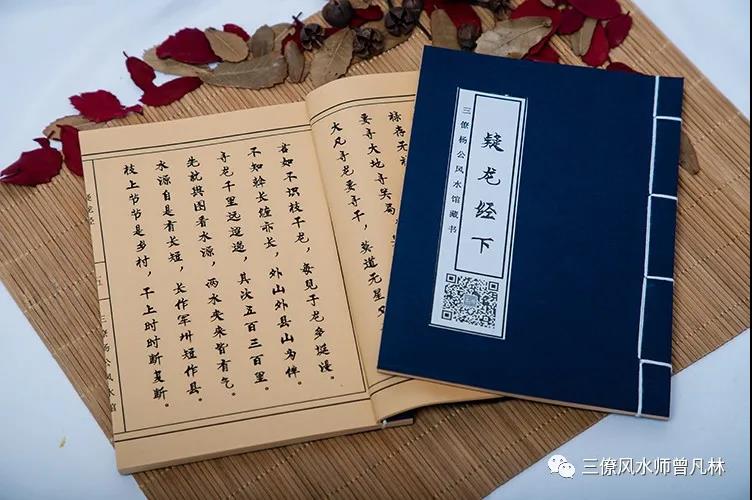 三僚杨公风水馆藏书
疑龙经下
禄存无
要寻大地寻关局
大凡寻龙要寻干，莫道无星
君如不识枝干龙，每见干龙多诞漫。
不知幹长缠亦长，外山外县山为伴。
寻龙千里远迢递，其次五百三百里。
先就舆图看水源，两水夹来皆有气。
水源自是有长短，长作军州短作县。
枝上节节是乡村，干上时时断复断。
疑龙经
三僚杨公风水馆
三僚风水师曾凡林